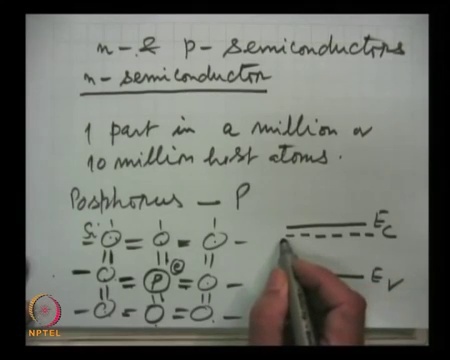 n- & p- semiconductors
n- semiconductor
1 part in a million or
10 million host atoms.
Posphorus — P
Si
P e
E_C
E_V
NPTEL